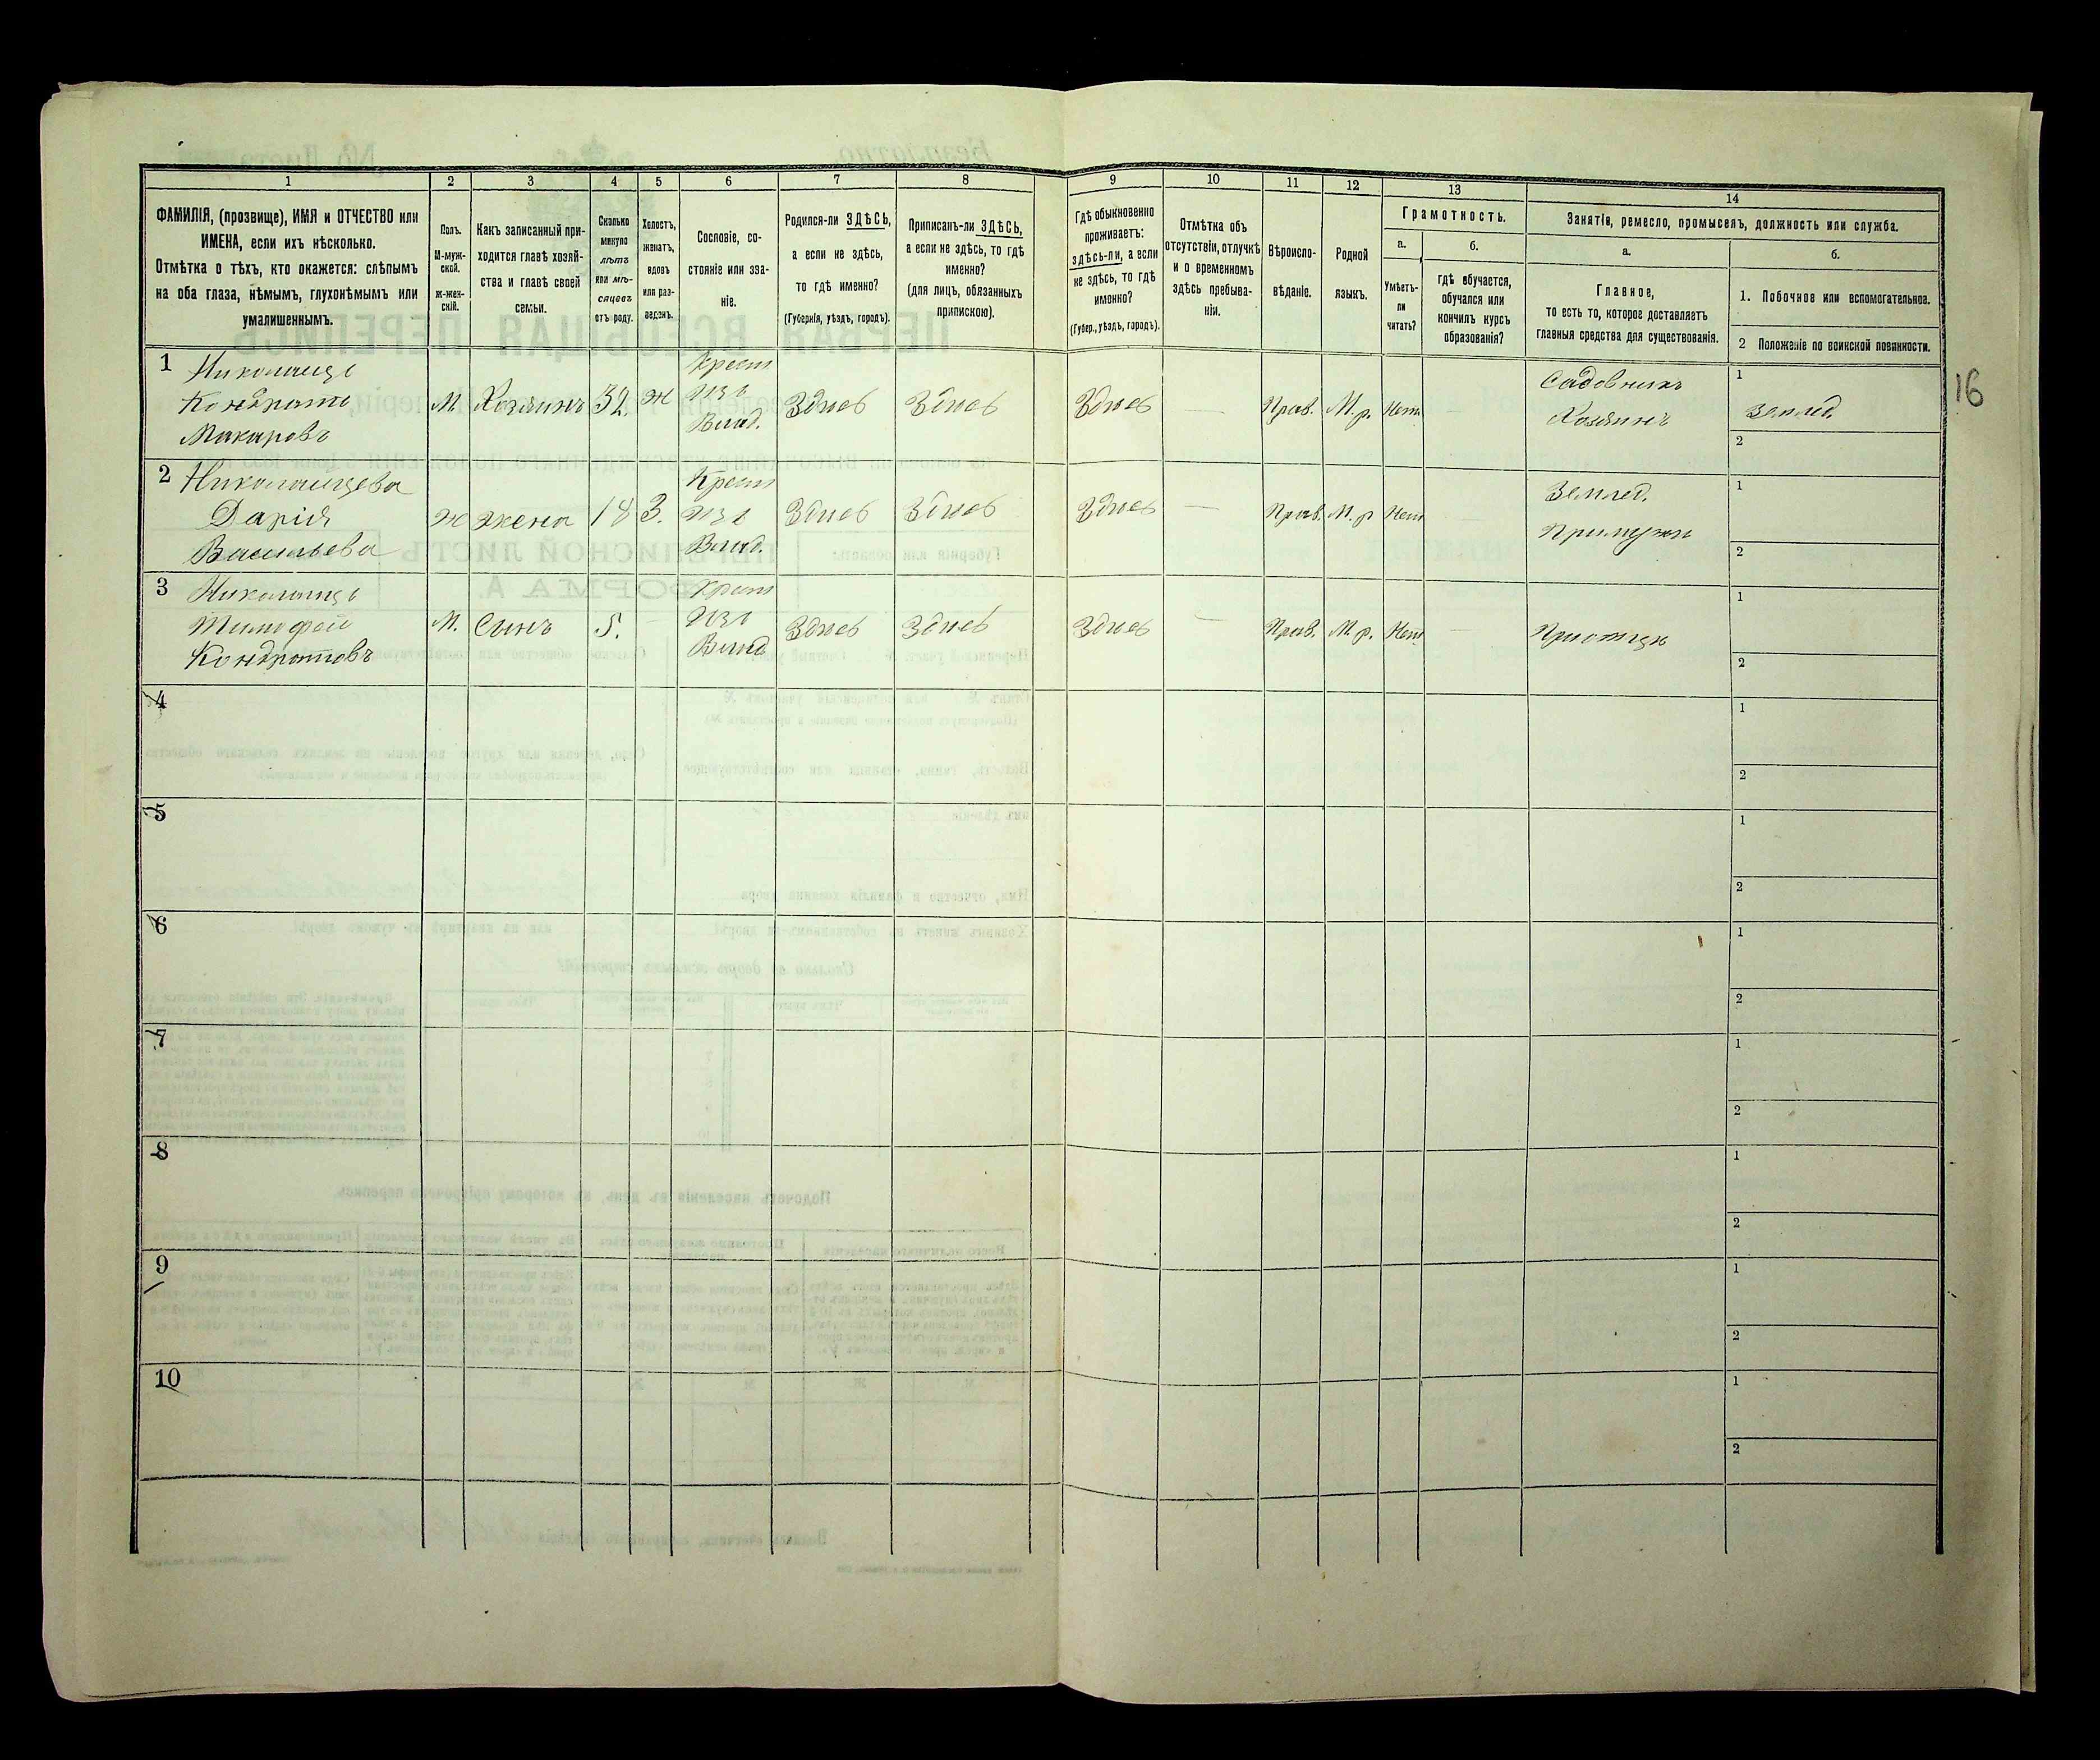 1
2
3
4
5
6
7
8
ФАМИЛІЯ, (прозвище), ИМЯ и ОТЧЕСТВО или
ИМЕНА, если ихъ нѣсколько.
Отмѣтка о тѣхъ, кто окажется: слѣпымъ
на оба глаза, нѣмымъ, глухонѣмымъ или
умалишеннымъ.
Полъ.
М-муж-
ской.
Ж-жен-
скій.
Какъ записанный при-
ходится главѣ хозяй-
ства и главѣ своей
семьи.
Сколько
минуло
лѣтъ
или мѣ-
сяцевъ
отъ роду.
Холостъ,
женатъ,
вдовъ
или раз-
веденъ.
Сословіе, со-
стояніе или зва-
ніе.
Родился-ли ЗДѢСЬ,
а если не здѣсь,
то гдѣ именно?
(Губернія, уѣздъ, городъ).
Приписанъ-ли ЗДѢСЬ,
а если не здѣсь, то гдѣ
именно?
(для лицъ, обязанныхъ
припискою).
9
10
11
12
13
14
Гдѣ обыкновенно
проживаетъ:
здѣсь-ли, а если
не здѣсь, то гдѣ
именно?
(Губер., уѣздъ, городъ).
Отмѣтка объ
отсутствіи, отлучкѣ
и о временномъ
здѣсь пребыва-
ніи.
Вѣроиспо-
вѣданіе.
Родной
языкъ.
Грамотность.
а.
б.
Умѣетъ-
ли
читать?
Гдѣ обучается,
обучался или
кончилъ курсъ
образованія?
Занятія, ремесло, промыселъ, должность или служба.
а.
б.
Главное,
то есть то, которое доставляетъ
главныя средства для существованія.
1. Побочное или вспомогательное.
2 Положеніе по воинской повинности.
1
Кондратъ
Макаровъ
М.
Хозяинъ
32
ж
Крест
изъ
Влад.
Здѣсь
Здѣсь
Здѣсь
—
Прав.
М.р.
Нет
—
Садовникъ
Хозяинъ
1
Землед.
2
16
2 Николаицева
Дарія
Васильева
ж
жена
18
З.
Крест
изъ
Влад.
Здѣсь
Здѣсь
Здѣсь
—
Прав.
М.р
Нет
—
Землед.
При мужѣ
1
2
3
Тимофей
Кондратовъ
М.
Сынъ
5.
—
Крест
изъ
Влад
Здѣсь
Здѣсь
Здѣсь
—
Прав.
М.р.
Нет
—
При отцѣ
1
2
4
1
2
5
1
2
6
1
2
7
1
2
8
1
2
9
1
2
10
1
2